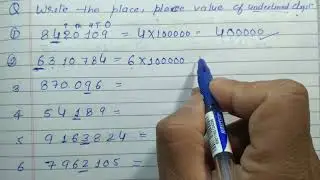 Q Write the place, place value of underlined digit.
T T H T O
① 8420109 = 4×100000 = 400000
② 6310784 = 6×100000
3 870.096 =
4 54189 =
5 9163824 =
6 7962105 =